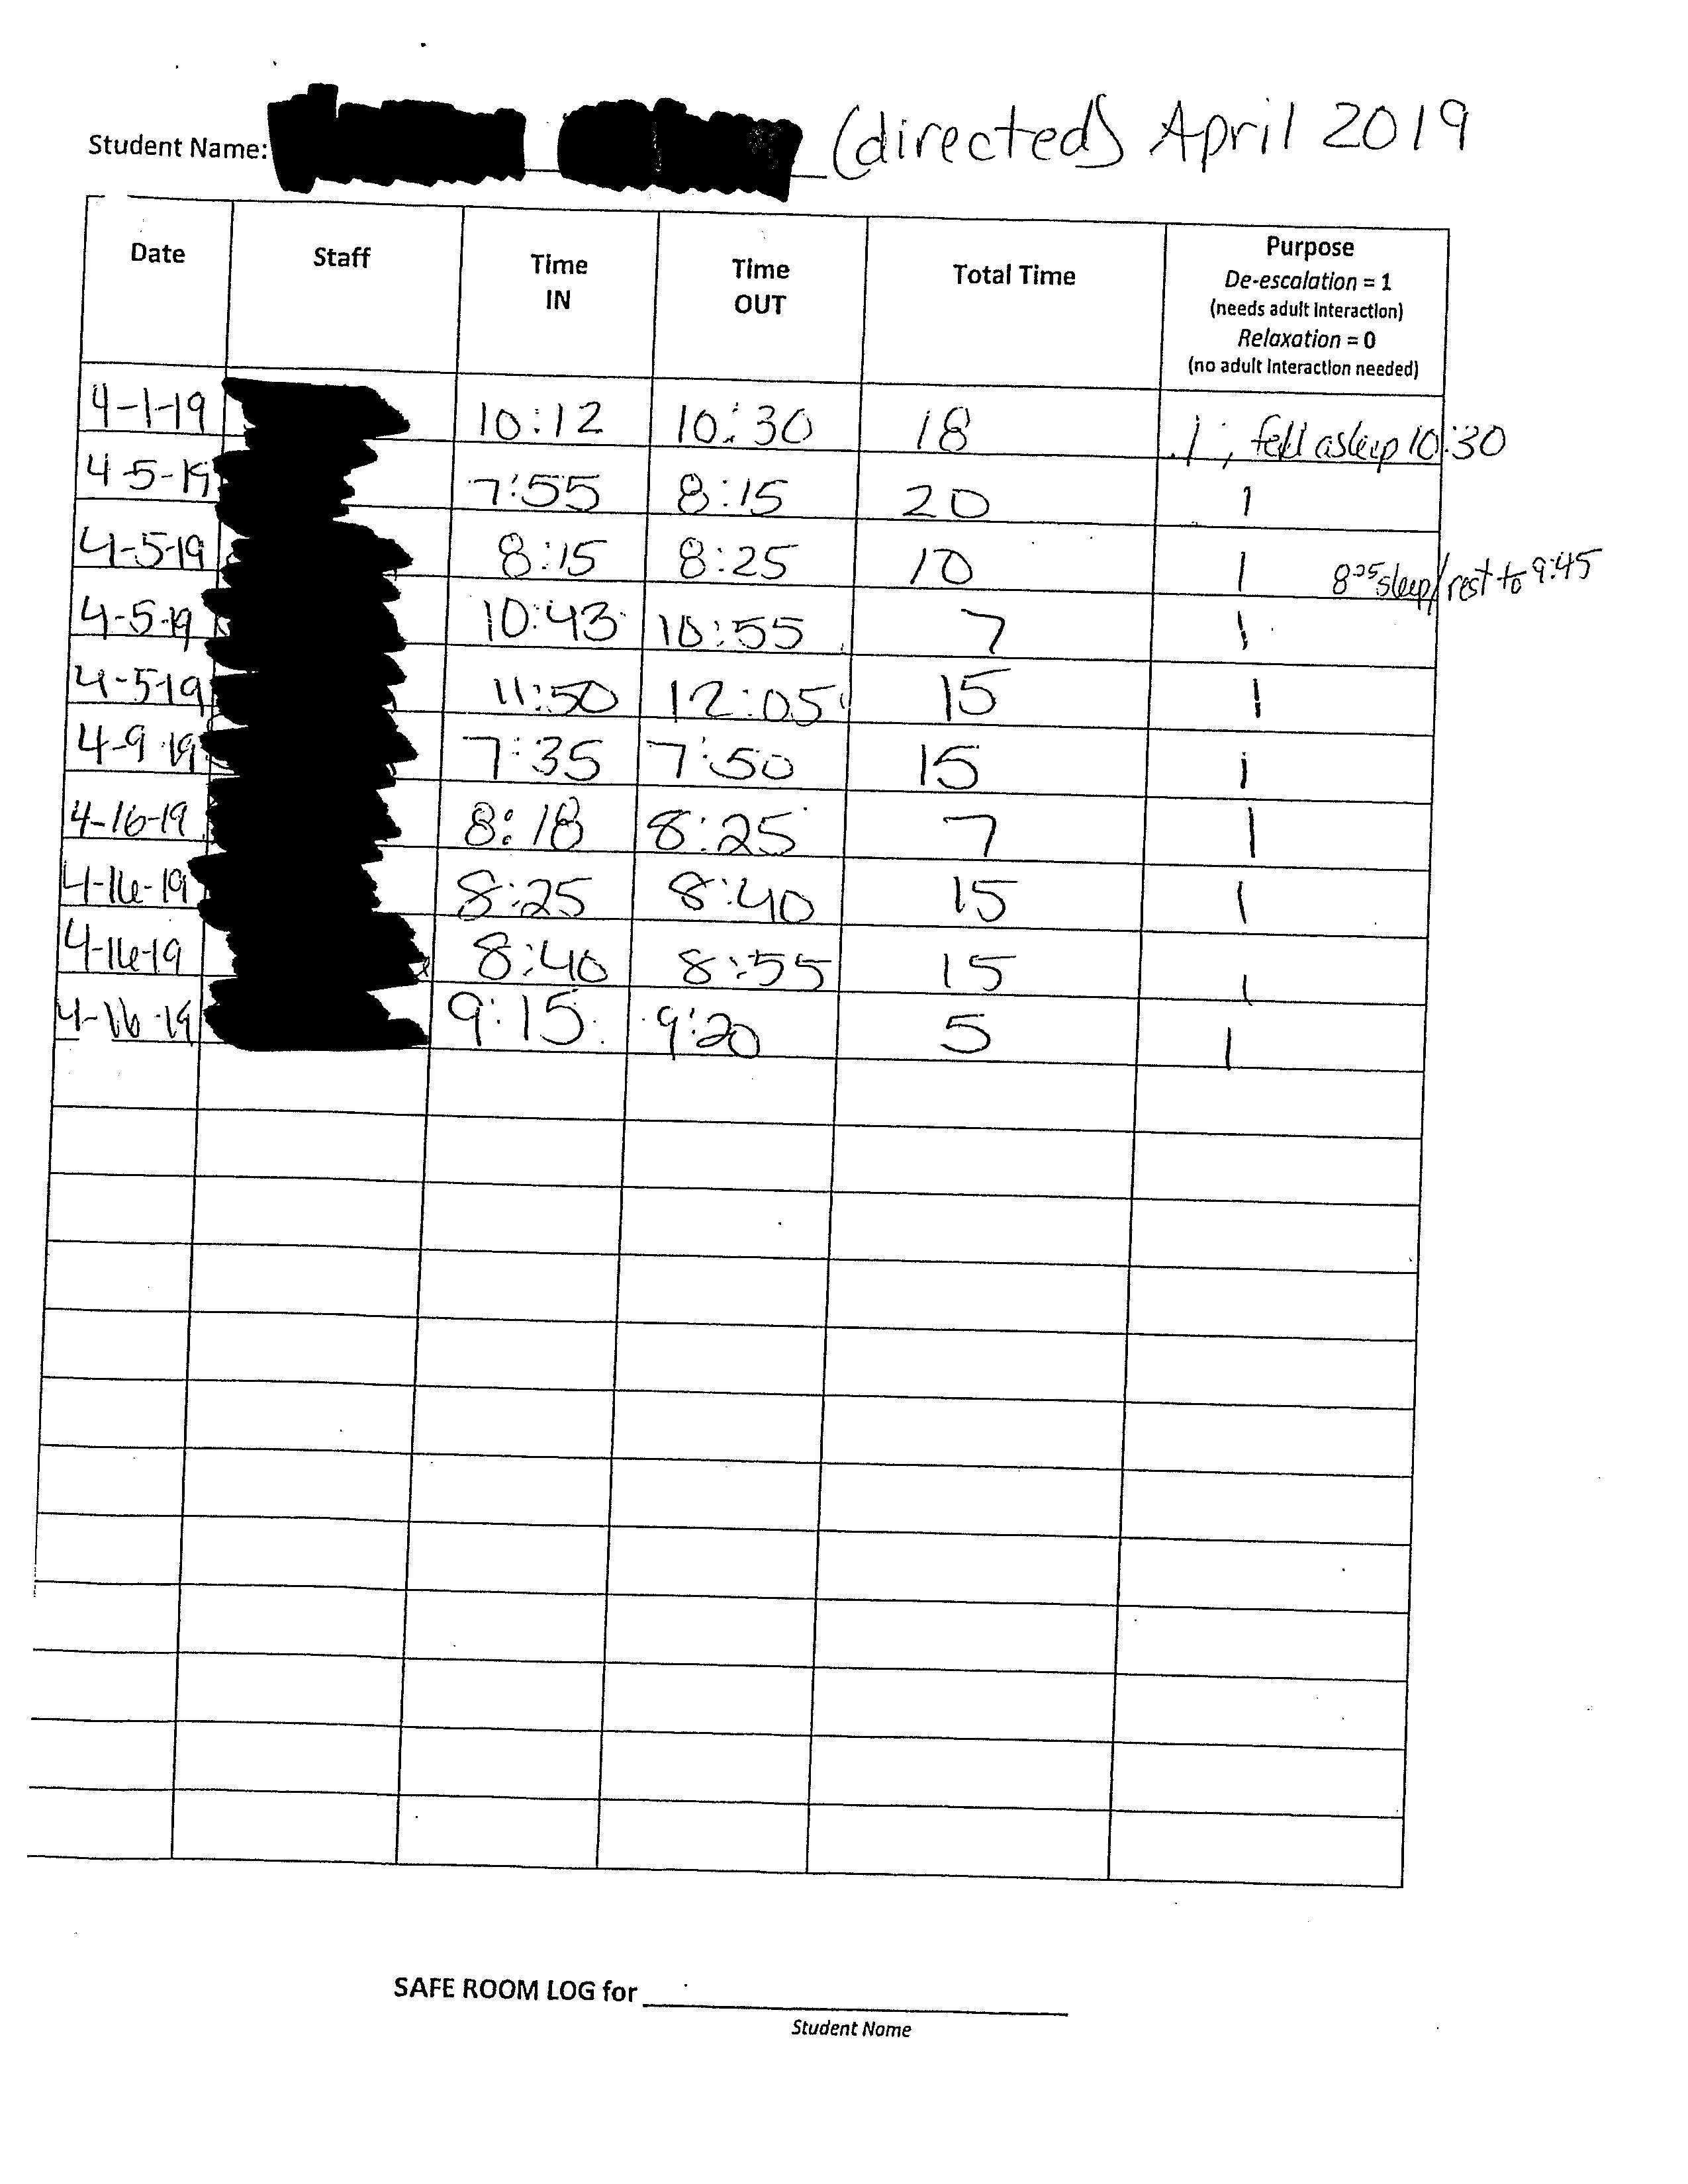 Student Name: (directed) April 2019
Date Staff Time IN Time OUT Total Time Purpose
De-escalation = 1
(needs adult interaction)
Relaxation = 0
(no adult interaction needed)
4-1-19 10:12 10:30 18 1; fell asleep 10:30
4-5-19 7:55 8:15 20 1
4-5-19 8:15 8:25 10 1 8:25 sleep/rest to 9:45
4-5-19 10:43 10:55 7 1
4-5-19 11:50 12:05 15 1
4-9-19 7:35 7:50 15 1
4-16-19 8:18 8:25 7 1
4-16-19 8:25 8:40 15 1
4-16-19 8:40 8:55 15 1
4-16-19 9:15 9:20 5 1
SAFE ROOM LOG for
Student Name